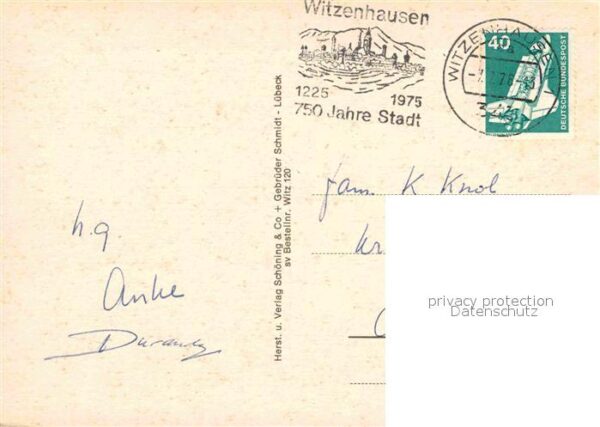 Witzenhausen
1225 1975
750 Jahre Stadt
WITZENHAUSEN
40
DEUTSCHE BUNDESPOST
Herst. u. Verlag Schöning & Co + Gebrüder Schmidt - Lübeck
sv Bestellnr. Witz 120
Fam. K Knol
h.g.
Anke
privacy protection
Datenschutz